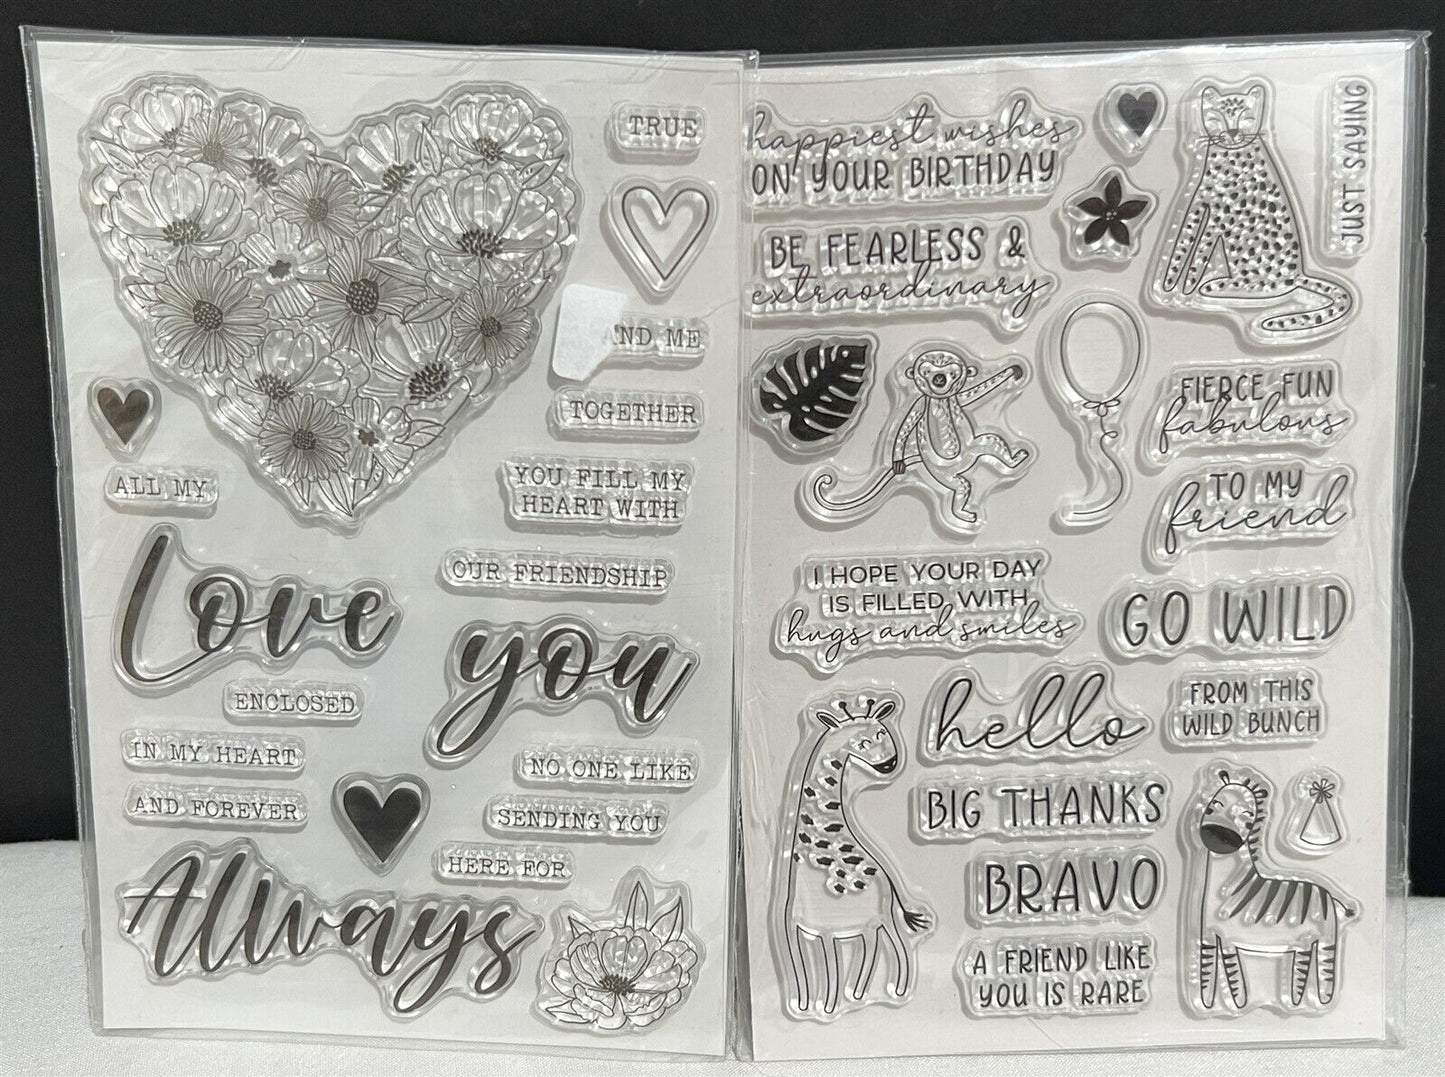 TRUE
ND ME
TOGETHER
ALL MY
YOU FILL MY
HEART WITH
OUR FRIENDSHIP
Love
you
ENCLOSED
IN MY HEART
NO ONE LIKE
AND FOREVER
SENDING YOU
HERE FOR
Always
happiest wishes
ON YOUR BIRTHDAY
JUST SAYING
BE FEARLESS &
extraordinary
FIERCE FUN
fabulous
TO MY
friend
I HOPE YOUR DAY
IS FILLED WITH
hugs and smiles
GO WILD
hello
FROM THIS
WILD BUNCH
BIG THANKS
BRAVO
A FRIEND LIKE
YOU IS RARE